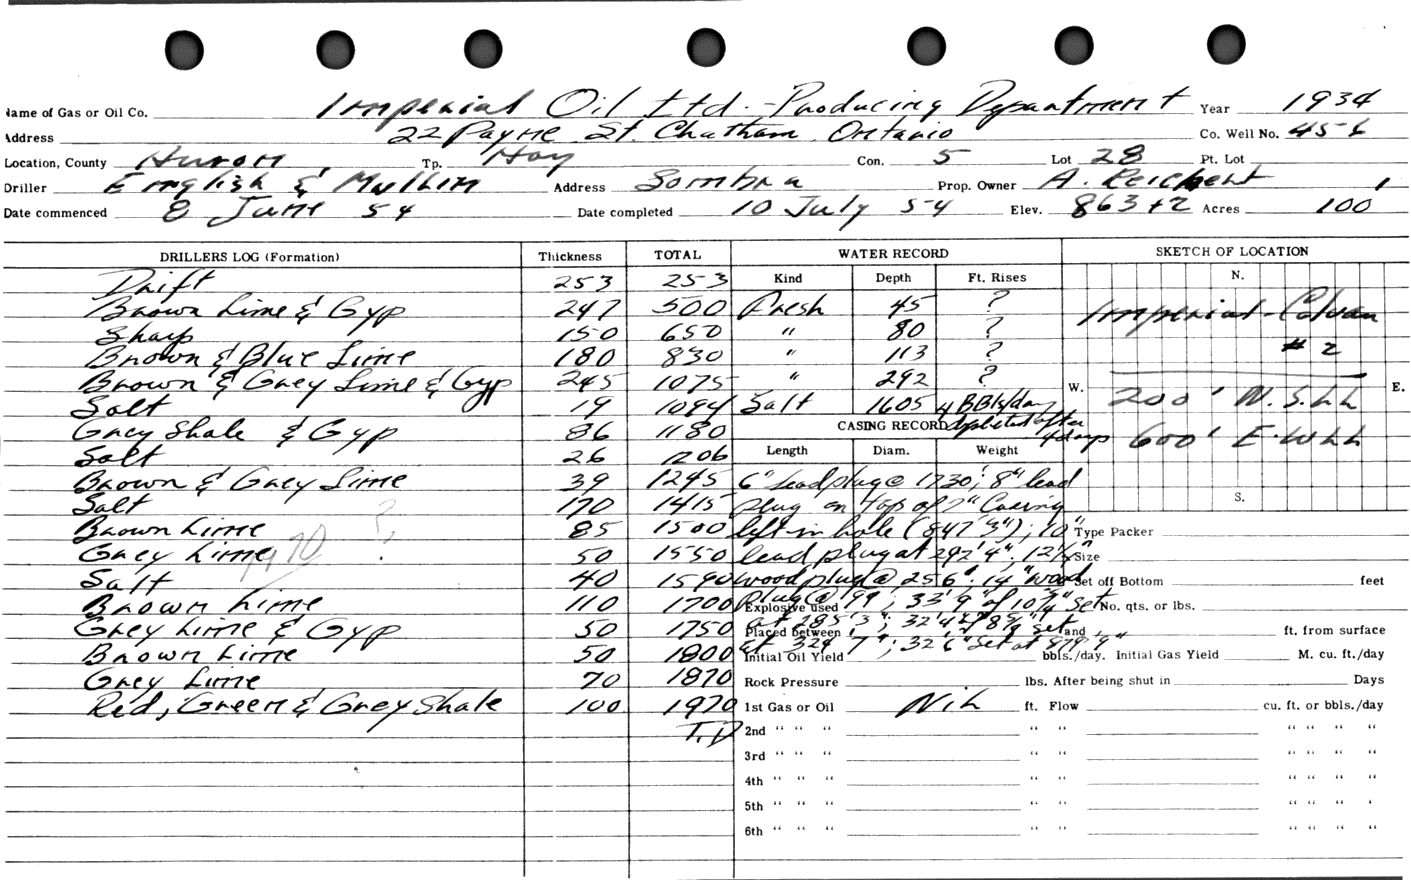 Name of Gas or Oil Co. Imperial Oil Ltd. - Producing Department Year 1934
Address 22 Payne St. Chatham Ontario Co. Well No. 45-6
Location, County Huron Tp. Hay Con. 5 Lot 28 Pt. Lot
Driller English & Mullin Address Sombra Prop. Owner A. Reichert
Date commenced 8 June 54 Date completed 10 July 54 Elev. 863+2 Acres 100
DRILLERS LOG (Formation) Thickness TOTAL WATER RECORD SKETCH OF LOCATION
Kind Depth Ft. Rises N.
Drift 253 253
Brown Lime & Gyp 247 500 Fresh 45 ? Imperial-Calvan
Sharp 150 650 " 80 ?
Brown & Blue Lime 180 830 " 113 ? # 2
Brown & Grey Lime & Gyp 245 1075 " 292 ?
W. E.
Salt 19 1094 Salt 1605 4 BBls/day 200' N.S.L.L
Grey Shale & Gyp 86 1180 CASING RECORD depleted after
4 days 600' E.W.L.L
Salt 26 1206 Length Diam. Weight
Brown & Grey Lime 39 1245 6" lead plug @ 1730'; 8" lead
Salt 170 1415 plug on top of 7" Casing S.
Brown Lime 85 1500 left in hole (847'3"); 10" Type Packer
Grey Lime 50 1550 lead plug at 292'4"; 12½" Size
1470 ?
Salt 40 1590 wood plug @ 256'; 14" wood Set off Bottom feet
Brown Lime 110 1700 plug @ 99'; 33'9" of 10¾" set
Explosive used No. qts. or lbs.
Grey Lime & Gyp 50 1750 at 285'3"; 32'4" 8⅝" set
Placed between and ft. from surface
Brown Lime 50 1800 at 329'7"; 32'6" set at 879'9"
Initial Oil Yield bbls./day. Initial Gas Yield M. cu. ft./day
Grey Lime 70 1870 Rock Pressure lbs. After being shut in Days
Red, Green & Grey Shale 100 1970 1st Gas or Oil Nil ft. Flow cu. ft. or bbls./day
T.D 2nd " " " " " " " " "
3rd " " " " " " " " "
4th " " " " " " " " "
5th " " " " " " " " '
6th " " " " " " " " "